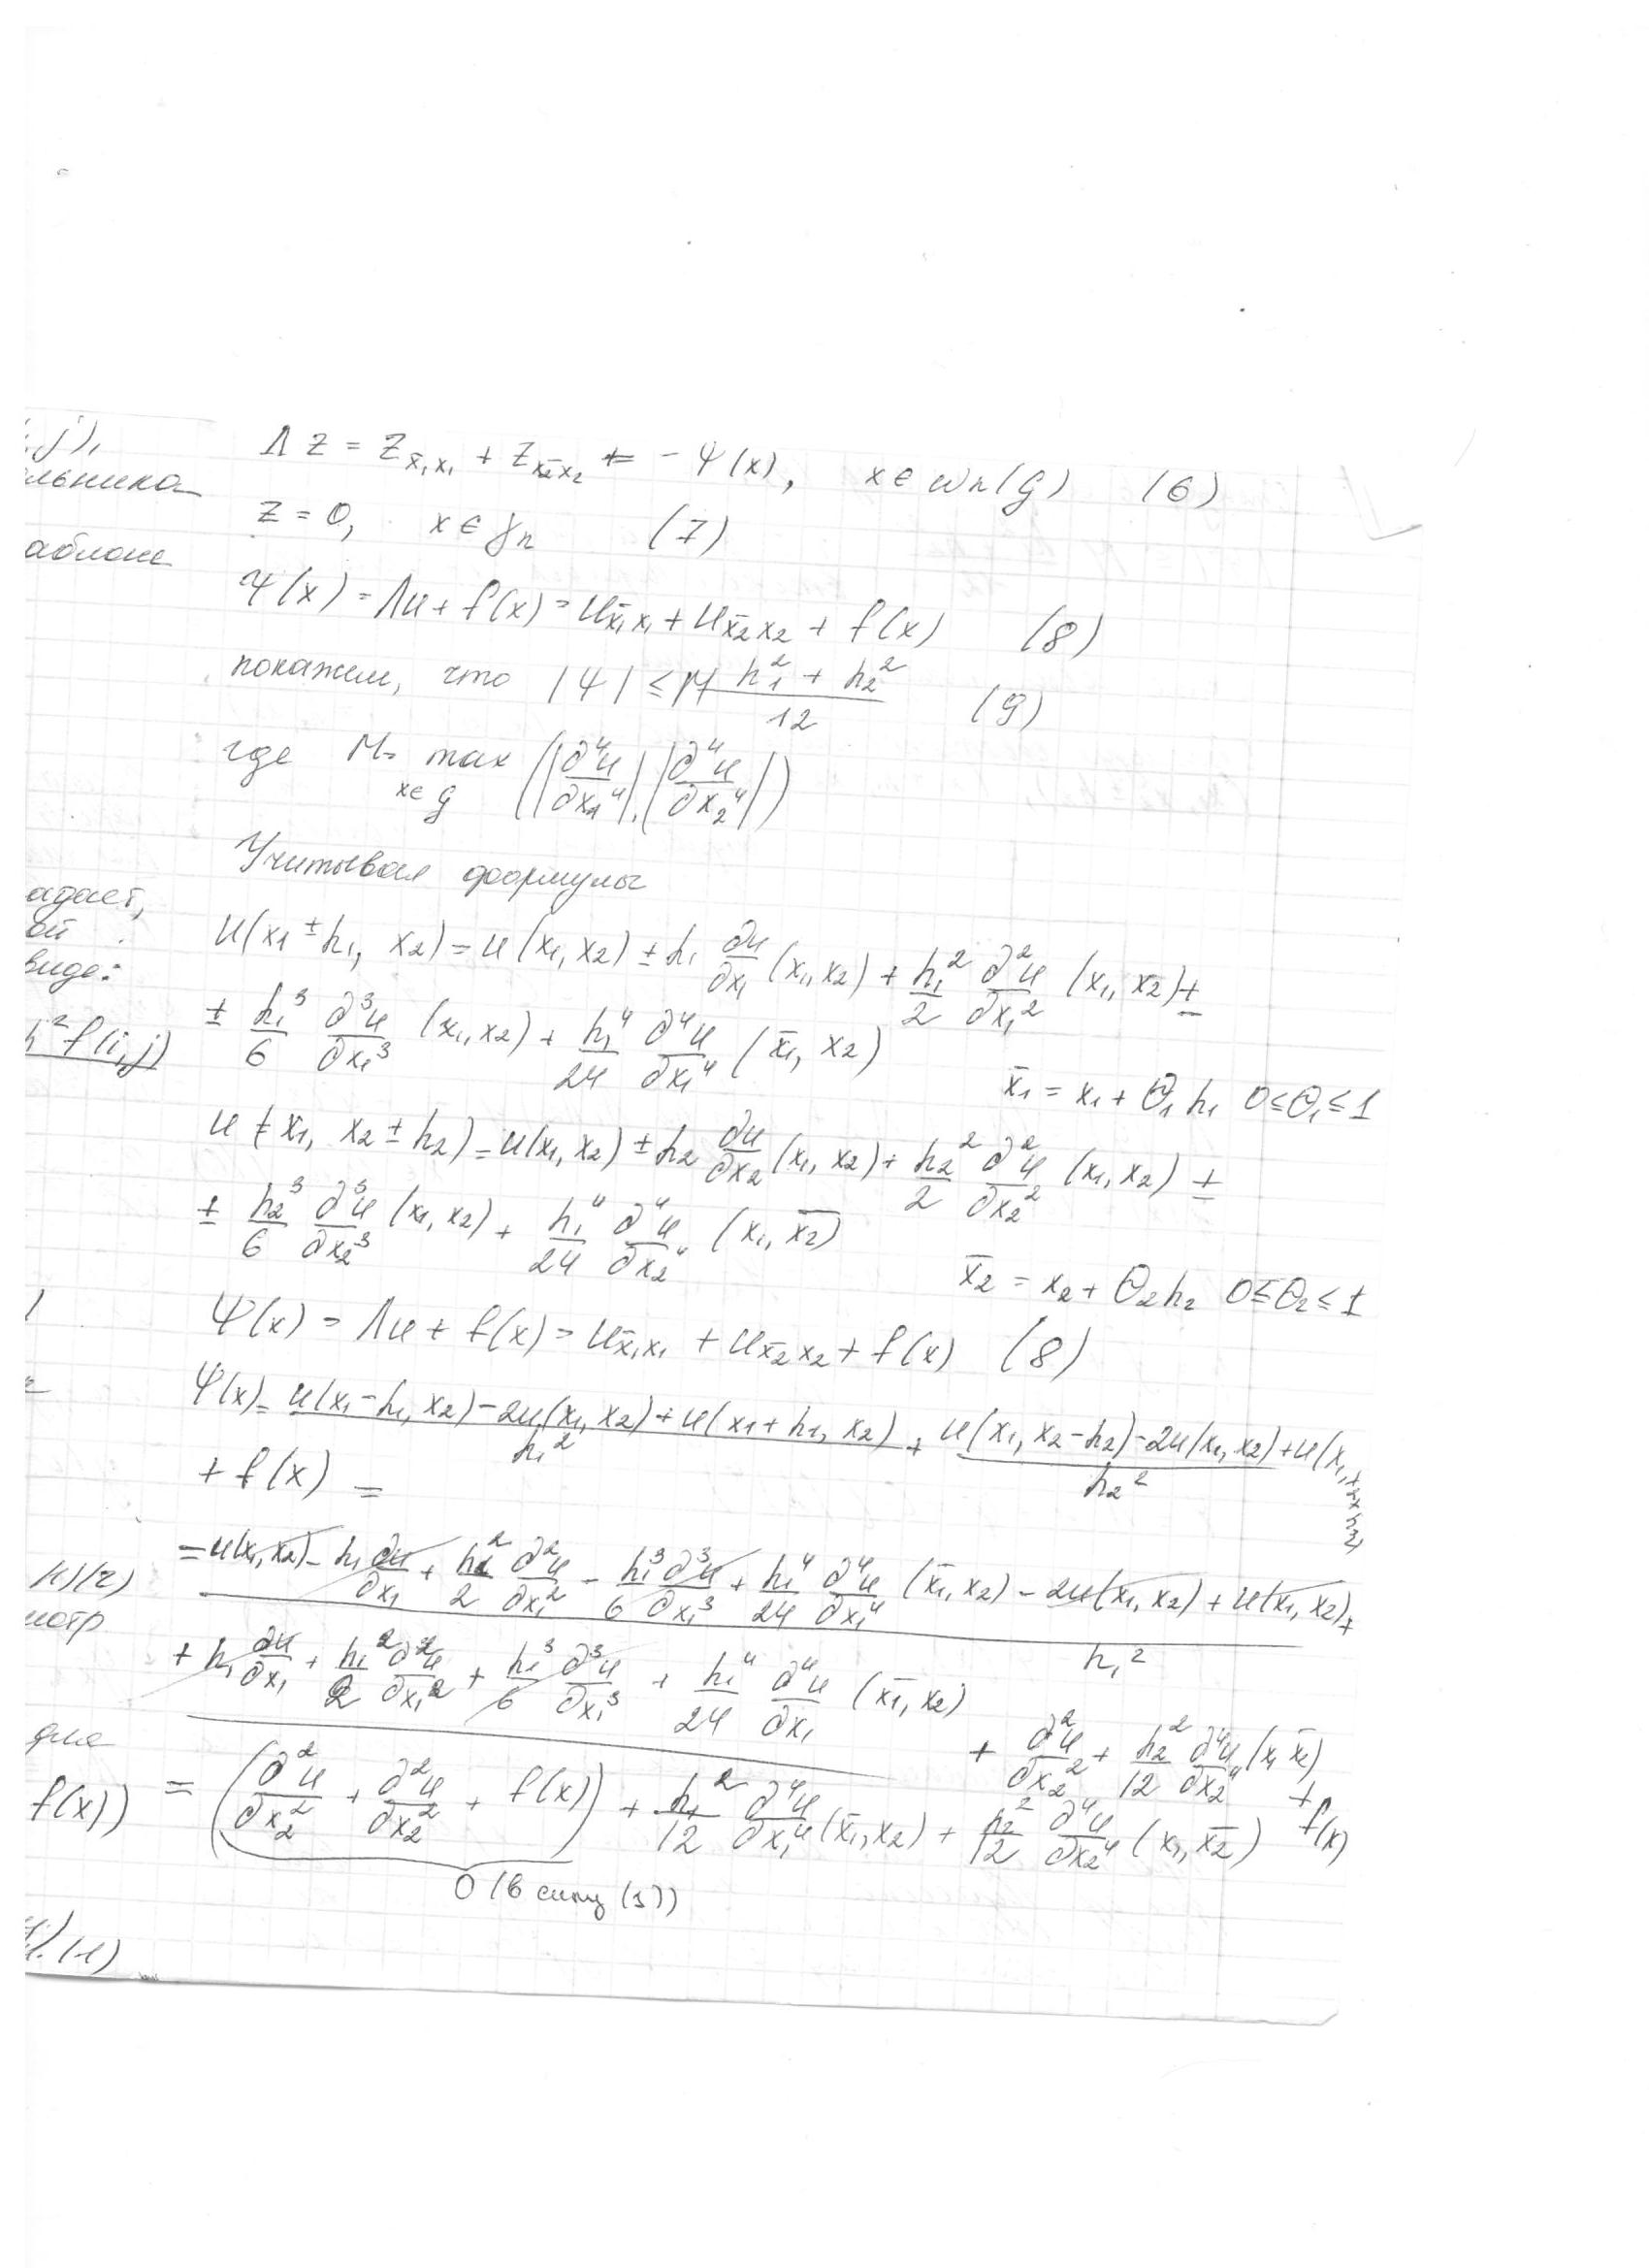 , j),
Λ z = z_{x̄₁x₁} + z_{x̄₂x₂} = - Ψ(x), x ∈ ωh(g) (6)
льника
z = 0, x ∈ γh (7)
аблоне
Ψ(x) = Λu + f(x) = u_{x̄₁x₁} + u_{x̄₂x₂} + f(x) (8)
покажем, что |Ψ| ≤ M (h₁² + h₂²)/12 (9)
где M = max_{x∈g} (|∂⁴u/∂x₁⁴|, |∂⁴u/∂x₂⁴|)
Учитывая формулы
адает,
ой
виде:
u(x₁ ± h₁, x₂) = u(x₁, x₂) ± h₁ ∂u/∂x₁ (x₁, x₂) + h₁²/2 ∂²u/∂x₁² (x₁, x₂) ±
± h₁³/6 ∂³u/∂x₁³ (x₁, x₂) + h₁⁴/24 ∂⁴u/∂x₁⁴ (x̄₁, x₂)
h² f(i,j)
x̄₁ = x₁ + θ₁ h₁ 0 ≤ θ₁ ≤ 1
u(x₁, x₂ ± h₂) = u(x₁, x₂) ± h₂ ∂u/∂x₂ (x₁, x₂) + h₂²/2 ∂²u/∂x₂² (x₁, x₂) ±
± h₂³/6 ∂³u/∂x₂³ (x₁, x₂) + h₁⁴/24 ∂⁴u/∂x₂⁴ (x₁, x̄₂)
x̄₂ = x₂ + θ₂ h₂ 0 ≤ θ₂ ≤ 1
Ψ(x) = Λu + f(x) = u_{x̄₁x₁} + u_{x̄₂x₂} + f(x) (8)
Ψ(x) = (u(x₁ - h₁, x₂) - 2u(x₁, x₂) + u(x₁ + h₁, x₂))/h₁² + (u(x₁, x₂ - h₂) - 2u(x₁, x₂) + u(x₁, x₂ + h₂))/h₂²
+ f(x) =
= u(x₁, x₂) - h₁ ∂u/∂x₁ + h₁²/2 ∂²u/∂x₁² - h₁³/6 ∂³u/∂x₁³ + h₁⁴/24 ∂⁴u/∂x₁⁴ (x̄₁, x₂) - 2u(x₁, x₂) + u(x₁, x₂) +
h₁²
+ h₁ ∂u/∂x₁ + h₁²/2 ∂²u/∂x₁² + h₁³/6 ∂³u/∂x₁³ + h₁⁴/24 ∂⁴u/∂x₁ (x̄₁, x₂)
+ ∂²u/∂x₂² + h₂²/12 ∂⁴u/∂x₂⁴ (x₁, x̄₂) + f(x)
для
f(x))
= (∂²u/∂x₂² + ∂²u/∂x₂² + f(x)) + h₁²/12 ∂⁴u/∂x₁⁴ (x̄₁, x₂) + h₂²/12 ∂⁴u/∂x₂⁴ (x₁, x̄₂)
0 (в силу (1))